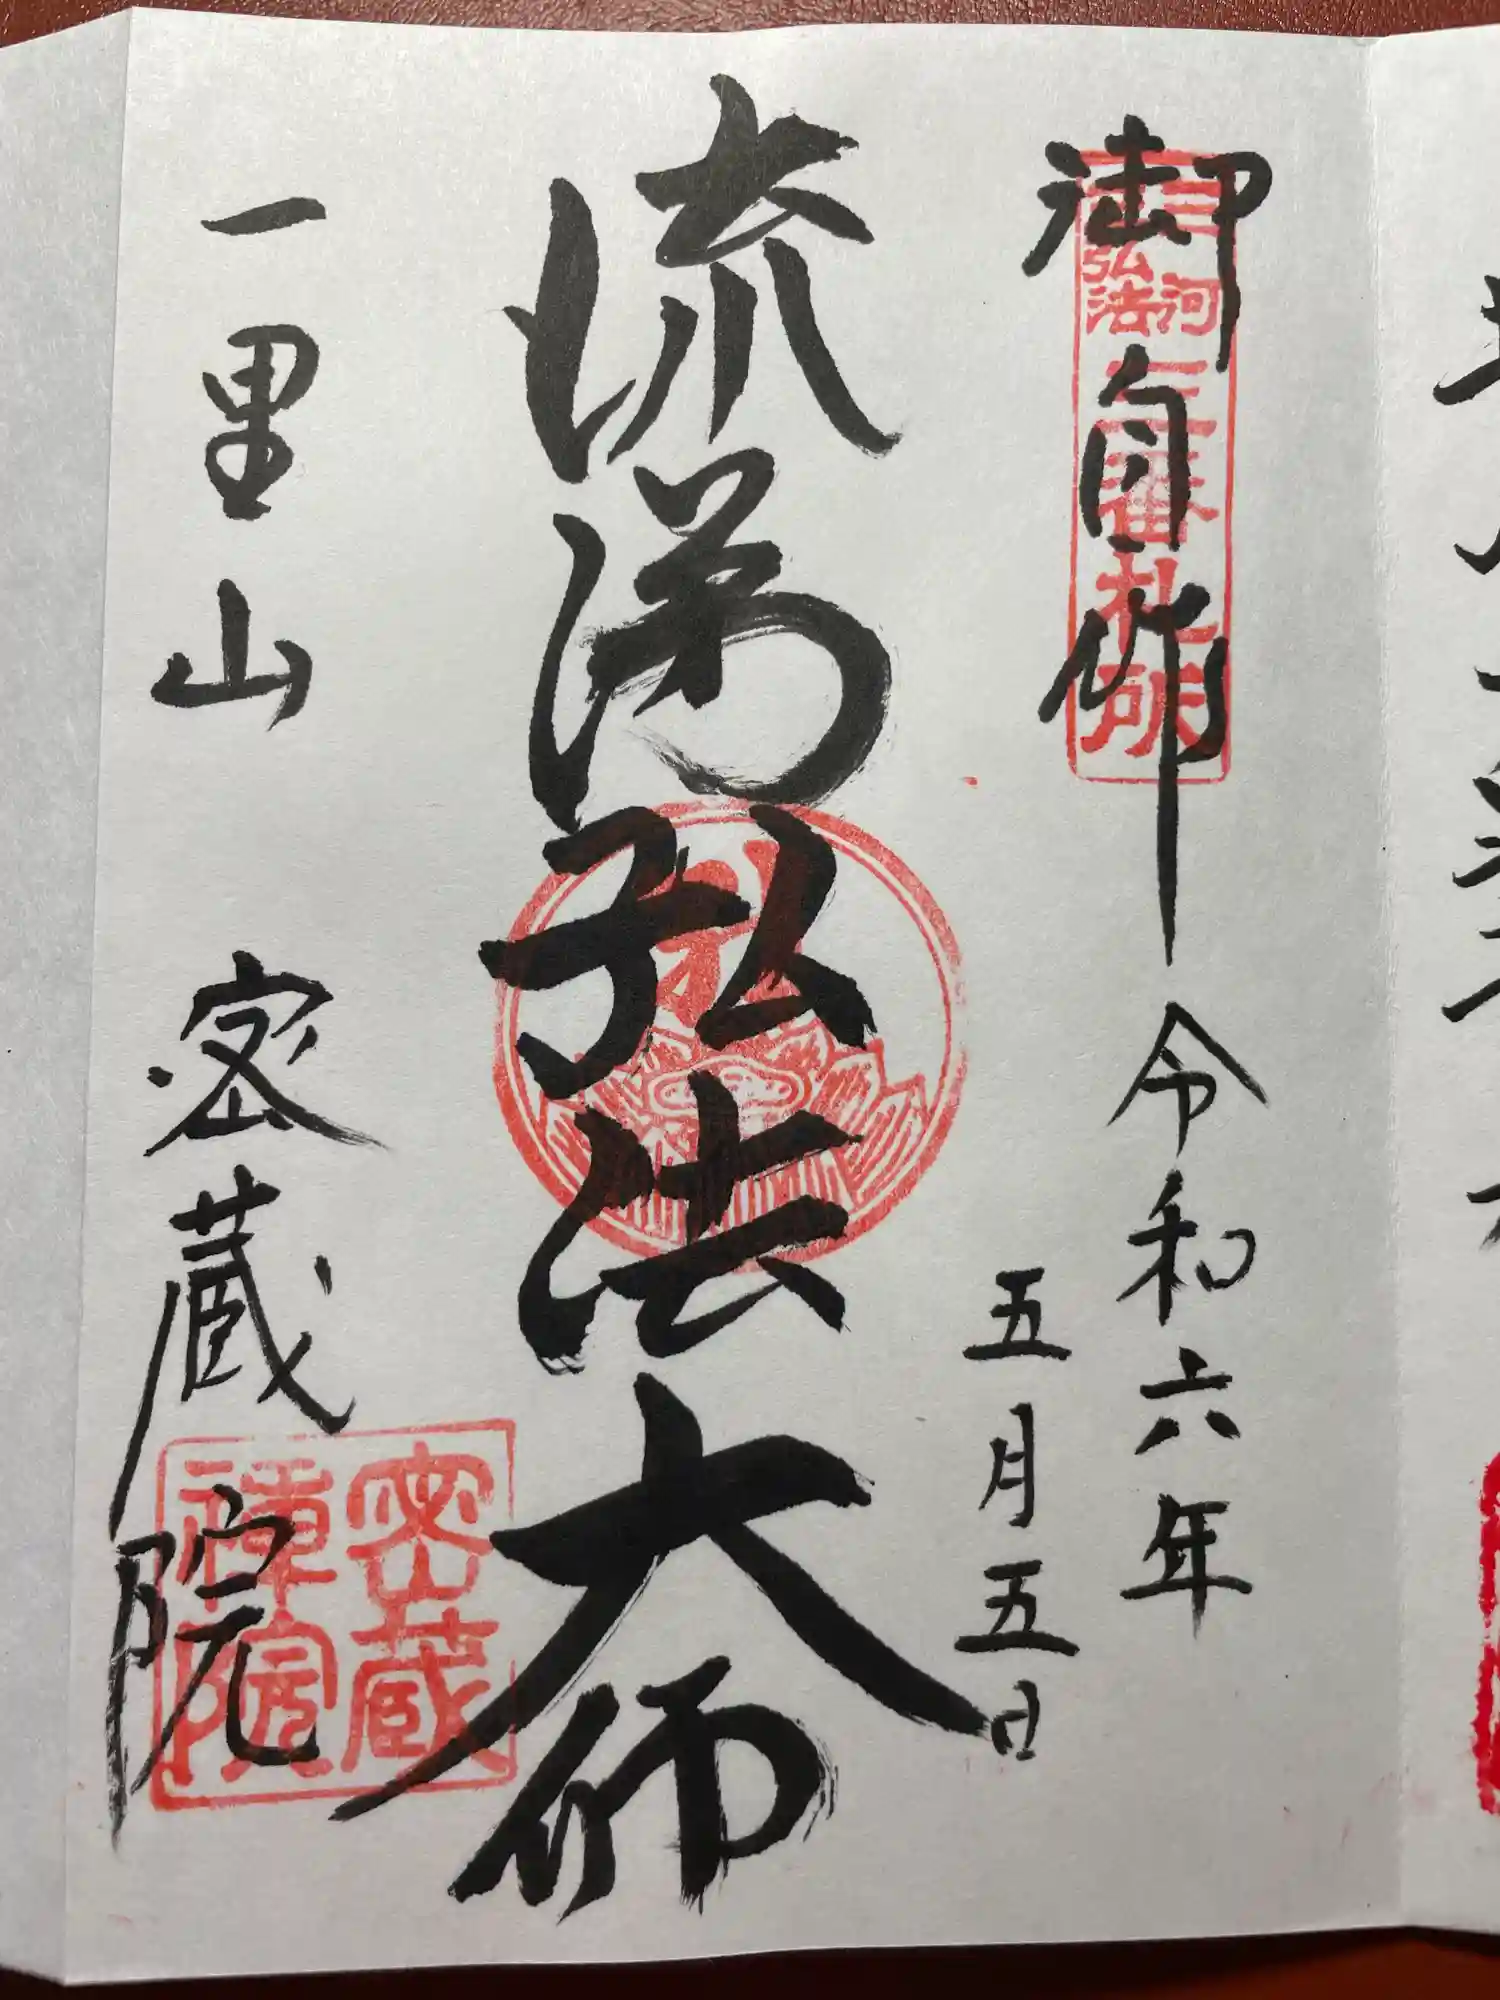 御自作
三河
弘法
三番札所
令和六年
五月五日
流涕弘法大師
一里山 密蔵院
密蔵
禅院